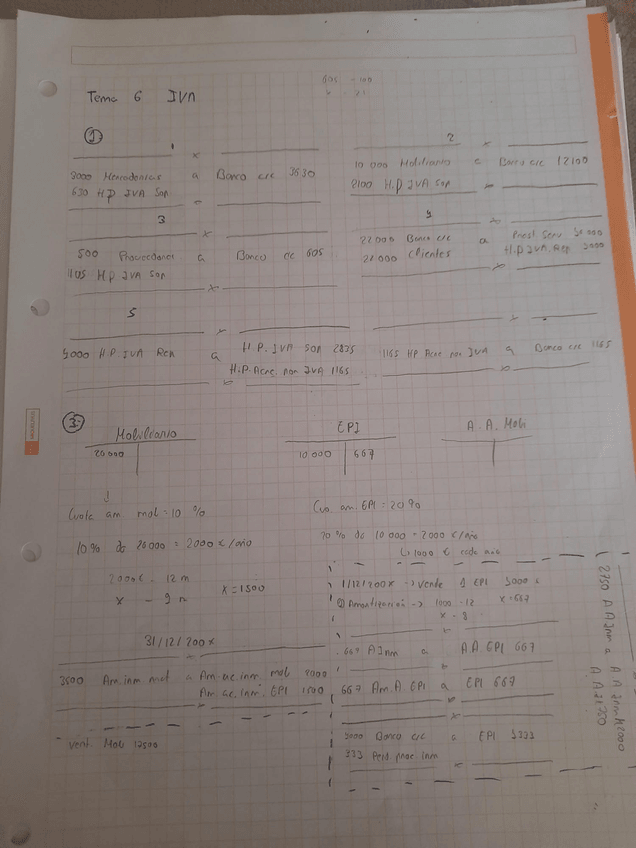 605 - 100
x - 21
Tema 6 IVA
①
1
x
3000 Mercaderías a Banco c/c 3630
630 HP IVA Sop
2
x
10 000 Mobiliario a Banco c/c 12100
2100 H.P IVA Sop
3
x
500 Proveedores a Banco c/c 605
105 H.P IVA Sop
x
x
22000 Banco c/c a Prest Serv
Clientes H.P. IVA Rep
x
5
x
H.P. IVA Rep a H.P. IVA Sop 2835
H.P. Acre. por IVA 1165
x
x
1165 HP Acre por IVA a Banco c/c 1165
x
③
Mobiliario
20000
EPI
10.000 667
A.A. Mob
↓
Cuota am. mol = 10 %
10% de 20000 = 2000 €/año
2000 € - 12 m
x - 9 m x = 1500
Cuo. am. EPI = 20%
20 % de 10 000 = 2000 €/año
↳ 1000 € cada
1/12/200x → vende 1 EPI
Amortización → 1000 - 12 x = 667
x - 8
31/12/200x
x
667 A Inm a A.A. EPI 667
3500 Am.inm.mat a Am.ac.inm. mob 2000
Am.ac.inm. EPI 1500
x
667 Am.A. EPI a EPI 667
x
x
Banco c/c a EPI
333 Perd proc inm
x
vent. Mob 12500
2750 A A Inm a A A Inm M 2000